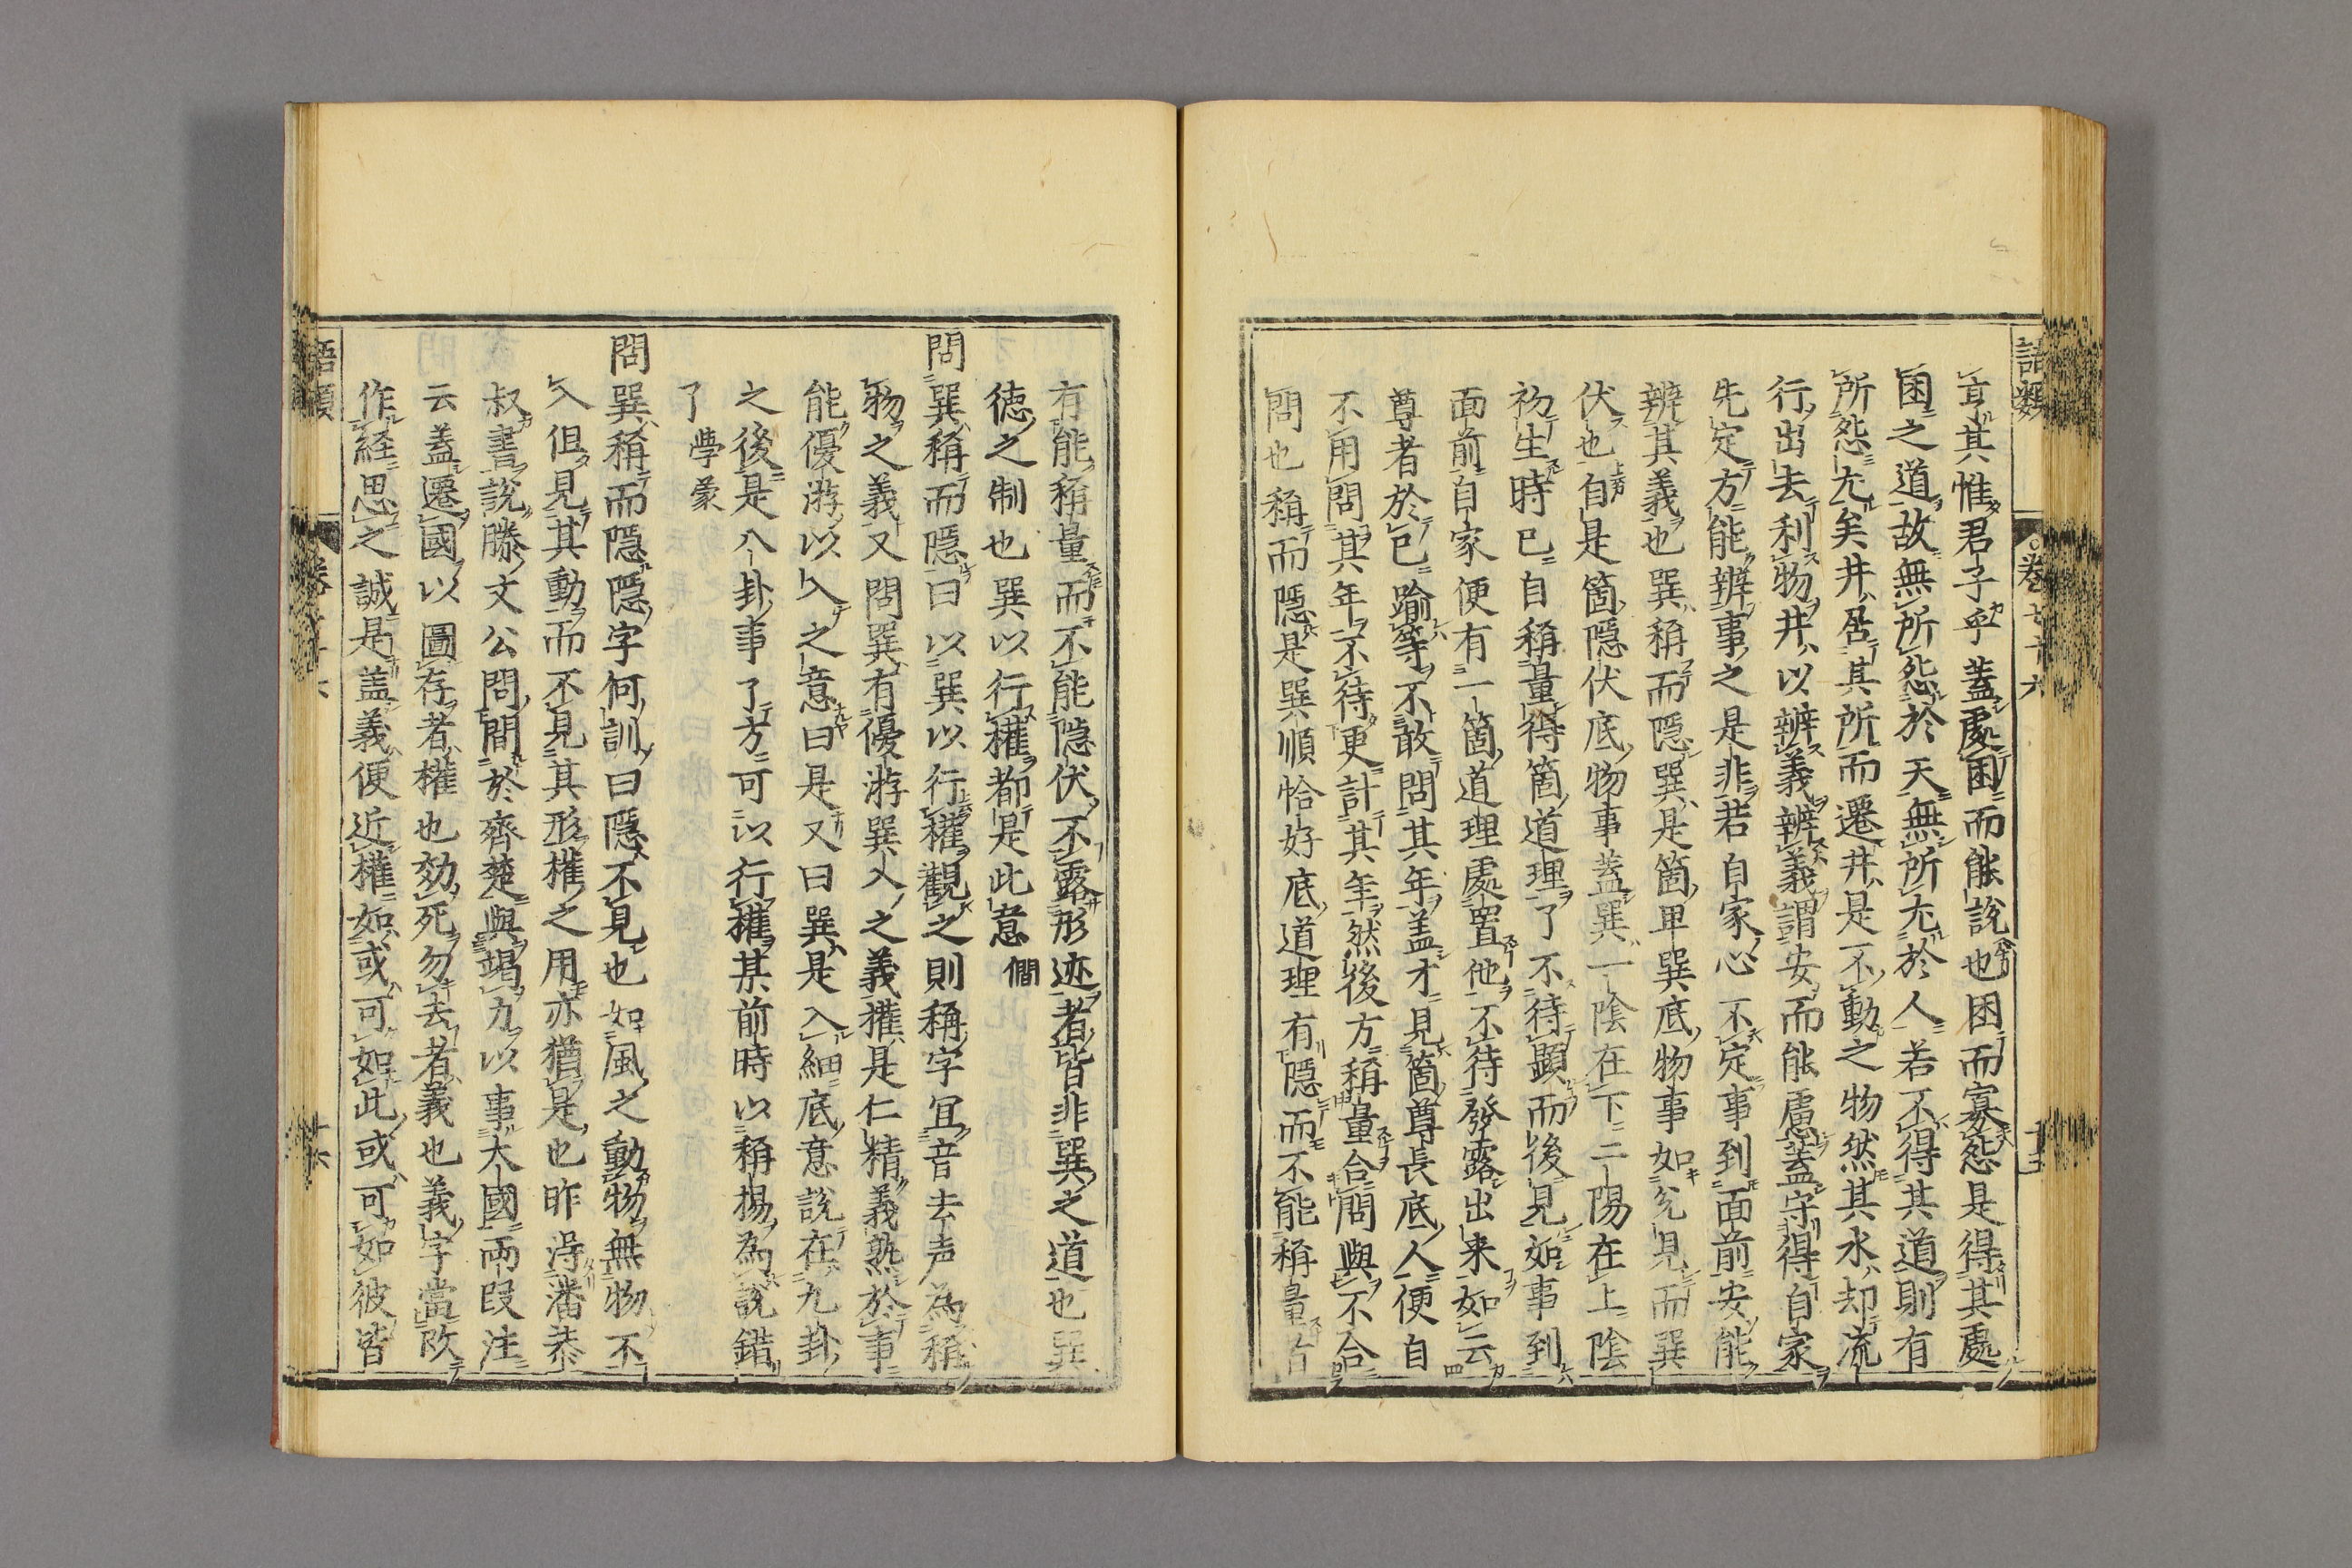 語類　卷七十六　十五
亨其惟君子乎蓋處困而能說也困而寡怨是得其處
困之道故無所怨於天無所尤於人若不得其道則有
所怨尤矣井居其所而遷井是不動之物然其水却流
行出去利物井以辨義辨義謂安而能慮蓋守得自家
先定方能辨事之是非若自家心不定事到面前安能
辨其義也巽稱而隱巽是箇卑巽底物事如兌見而巽
伏也自是箇隱伏底物事蓋巽一陰在下二陽在上陰
初生時已自稱量得箇道理了不待顯而後見如事到
面前自家便有一箇道理處置他不待發露出来如云
尊者於已踰等不敢問其年蓋才見箇尊長底人便自
不用問其年不待更計其年然後方稱量合問與不合
問也稱而隱是巽順恰好底道理有隱而不能稱量者
有能稱量而不能隱伏不露形迹者皆非巽之道也巽
徳之制也巽以行權都是此意　僴
問巽稱而隱曰以巽以行權觀之則稱字宜音去声為稱
物之義又問巽有優游巽入之義權是仁精義熟於事
能優游以入之意曰是又曰巽是入細底意說在九卦
之後是八卦事了方可以行權某前時以稱揚為說錯
了　學蒙
問巽稱而隱隱字何訓曰隱不見也如風之動物無物不
入但見其動而不見其形權之用亦猶是也昨得潘恭
叔書說滕文公問間於齊楚與竭力以事大國兩段注
云蓋遷國以圖存者權也効死勿去者義也義字當改
作経思之誠是蓋義便近權如或可如此或可如彼皆
語類　卷七十六　十六